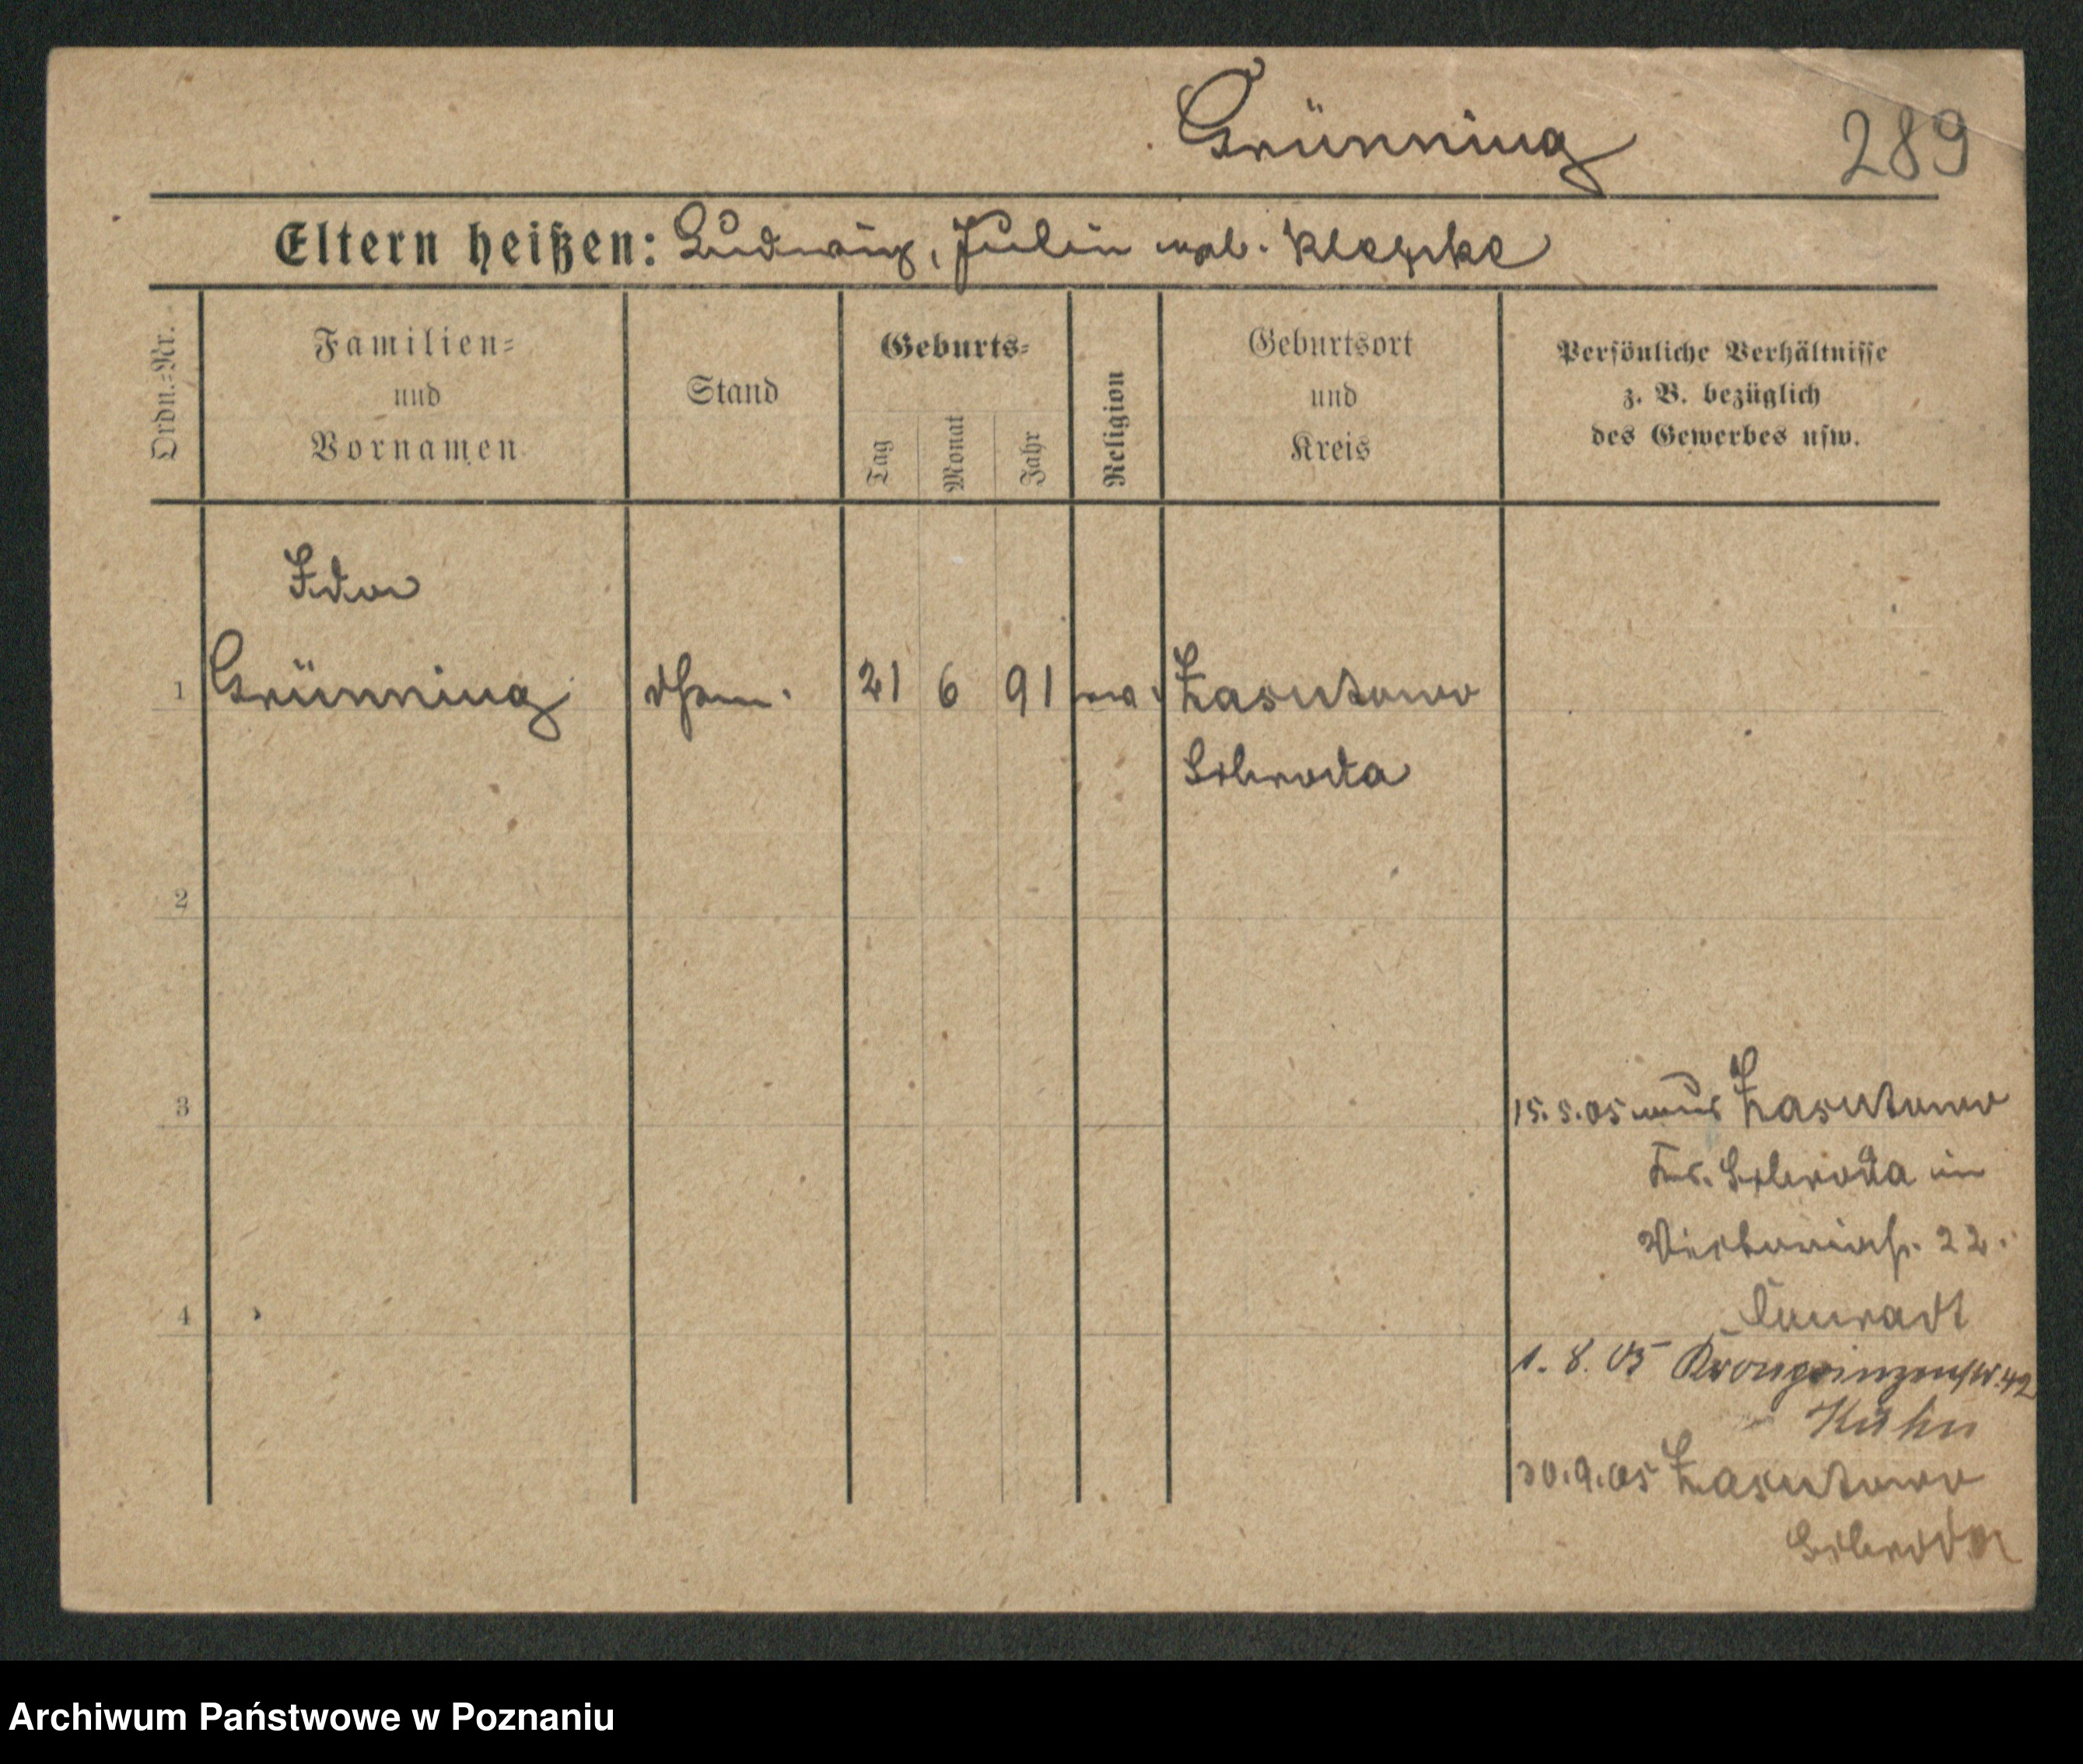 Grünning
289
Eltern heißen: Ludwig, Julie geb. Klepke
Ordn.-Nr.
Familien-
und
Vornamen
Stand
Geburts-
Tag
Monat
Jahr
Religion
Geburtsort
und
Kreis
Persönliche Verhältnisse
z. B. bezüglich
des Gewerbes usw.
Ida
1 Grünning 21 6 91 ev. Zasutowo
Schroda
2
3
15.5.05 aus Zasutowo
Krs. Schroda in
Victoriastr. 22.
4
Conradt
1.8.05 Kronprinzenstr. 42
Kühn
30.9.05 Zasutowo
Schroda
Archiwum Państwowe w Poznaniu